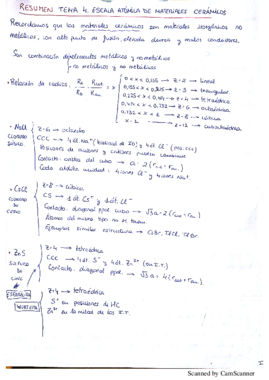 RESUMEN TEMA 4. ESCALA ATÓMICA DE MATERIALES CERÁMICOS
Recordemos que los materiales cerámicos son materiales inorgánicos no
metálicos, con alto punto de fusión, elevada dureza y malos conductores.
Son combinación de elementos metálicos y no metálicos
no metálicos y no metálicos
• Relación de radios:
0 < x < 0,155 → Z = 2 → lineal
0,155 < x < 0,225 → Z = 3 → triangular
0,225 < x < 0,414 → Z = 4 → tetraédrica
0,414 < x < 0,732 → Z = 6 → octaédrica
0,732 < x < 1 → Z = 8 → cúbica
x = 1 → Z = 12 → cuboctaédrica
• NaCl
CLORURO
SÓDICO
Z = 6 → octaedro
CCC → 4 át. Na⁺ y 4 át. Cl⁻
Contacto: aristas del cubo → a = 2 (
Cada celdilla unidad: 4 iones Cl⁻ y 4 iones Na⁺.
• CsCl
CLORURO
DE
CESIO
Z = 8 → cúbica
CS → 1 át. Cs⁺ y 1 át. Cl⁻
Contacto: diagonal ppal. cubo → √3a = 2(
Átomos del mismo tipo no se tocan.
Ejemplos similar estructura → CsBr, TlCl, TlBr.
• ZnS
SULFURO
DE
CINC
Z = 4 → tetraédrica
CCC → 4 át. S⁼ y 4 át. Zn²⁺ (en I.T.)
Contacto: diagonal ppal. → √3a = 4(
WURTZITA
Z = 4 → tetraédrica
S⁼ en posiciones de HC
Zn²⁺ en la mitad de los I.T.
Scanned by CamScanner